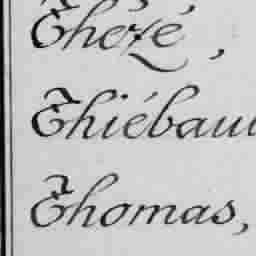 Thezé,
Thiébau
Thomas,